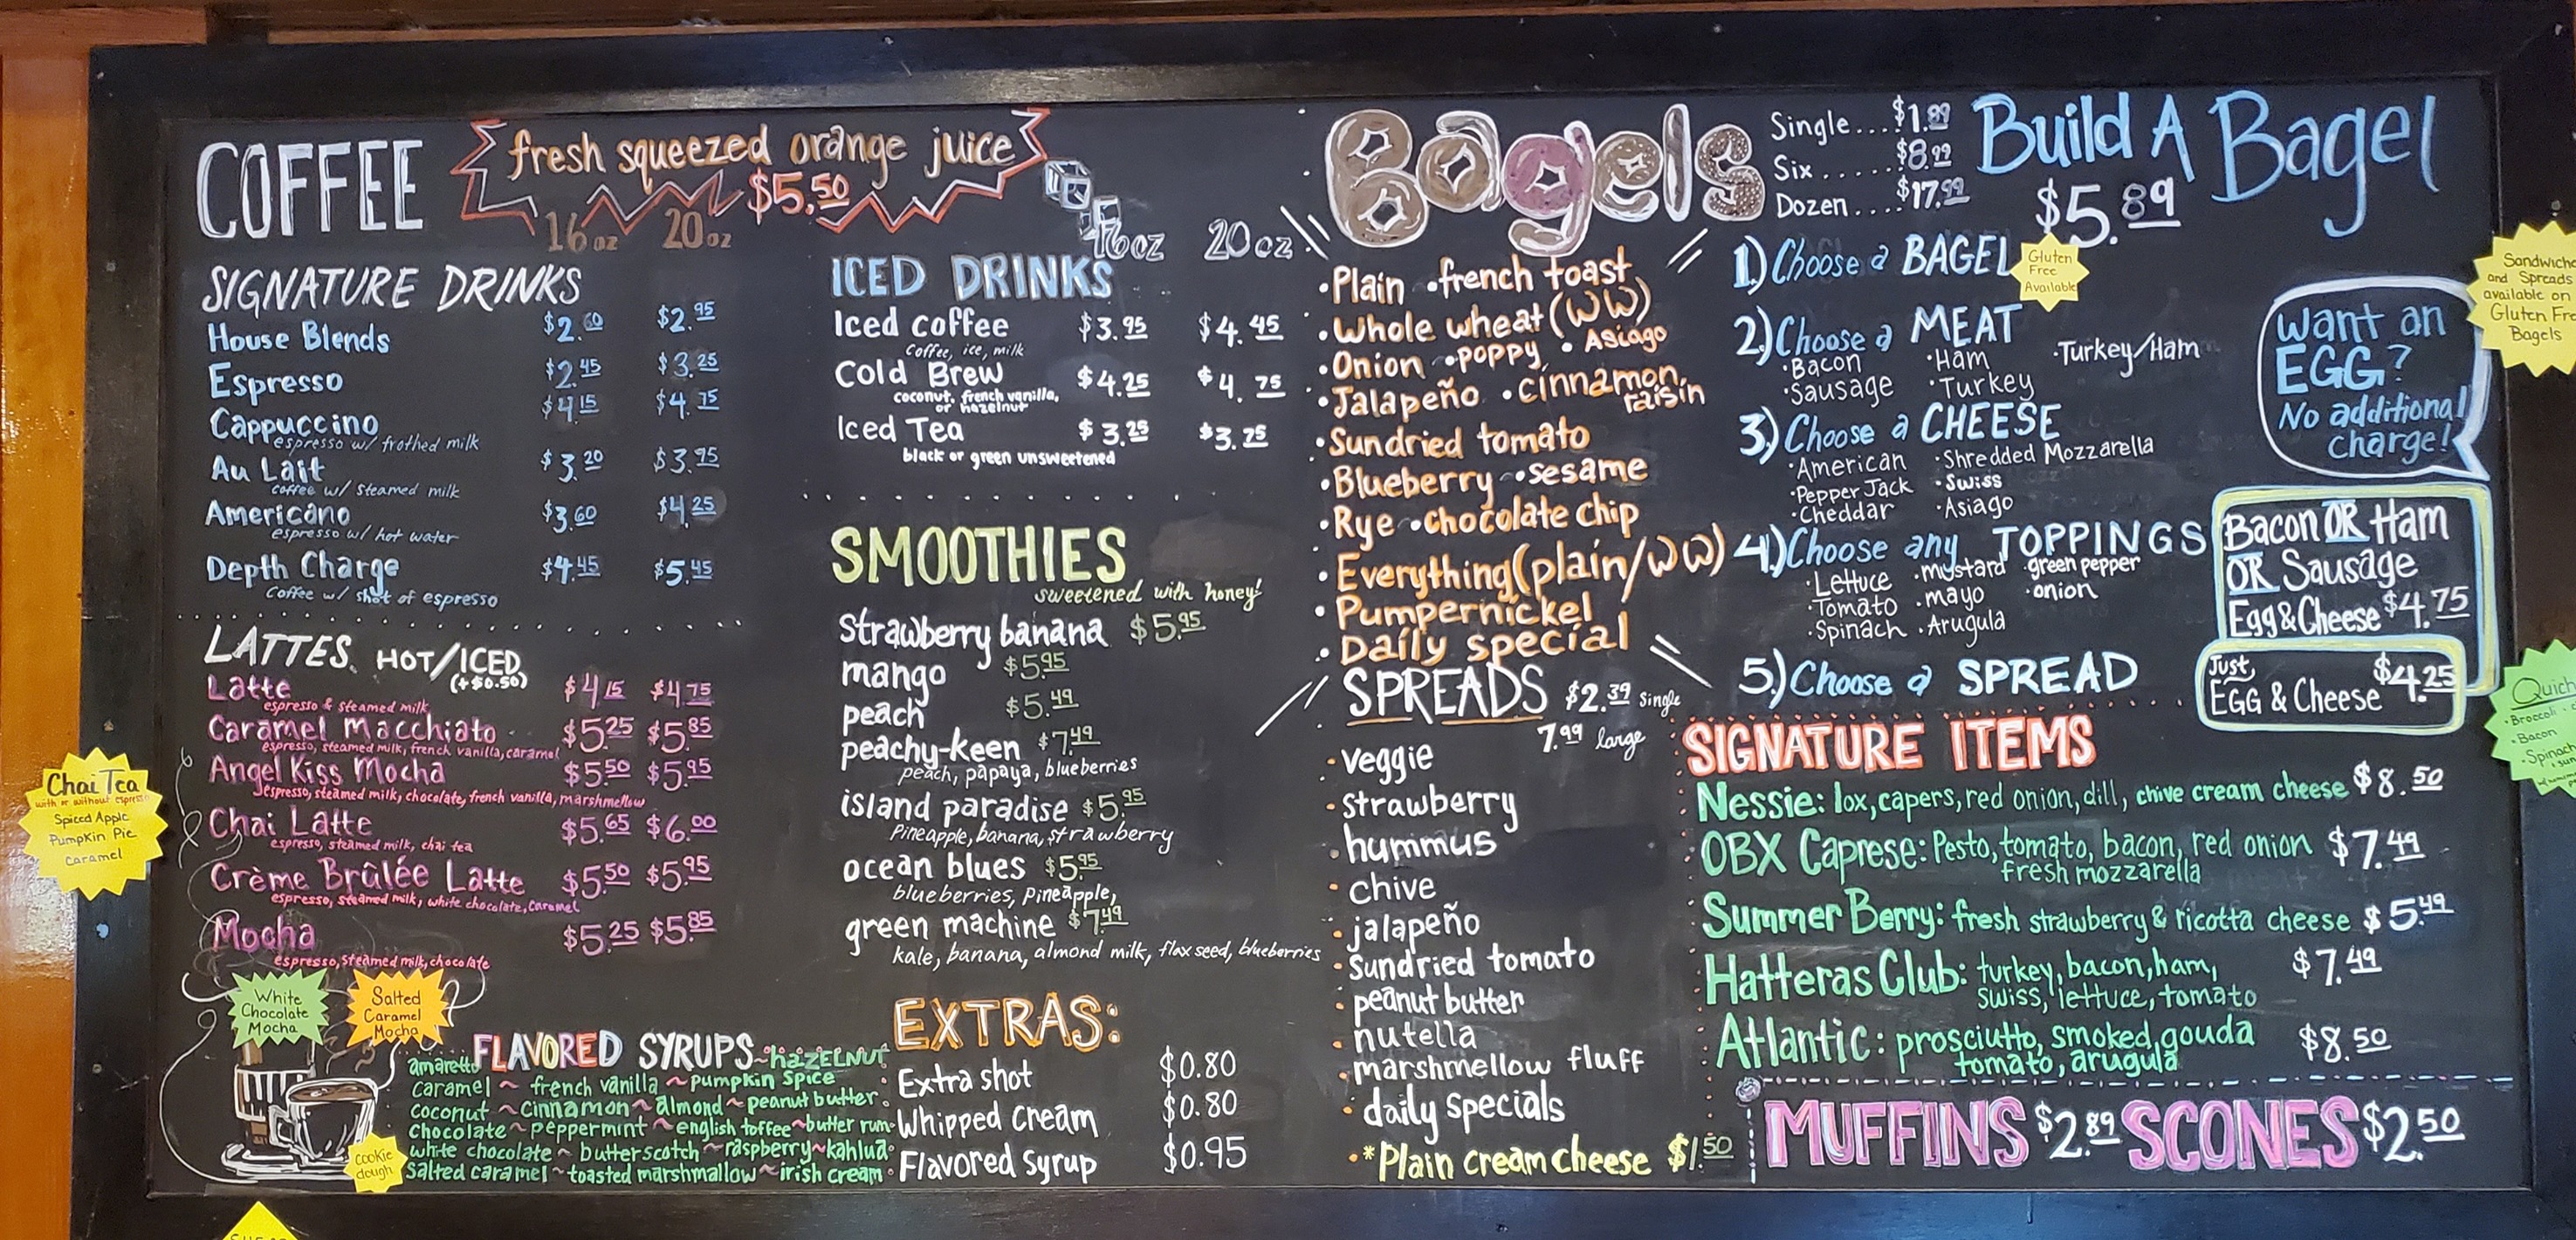 COFFEE
fresh squeezed orange juice
$5.50
16oz 20oz
SIGNATURE DRINKS
House Blends $2.60 $2.95
Espresso $2.45 $3.25
Cappuccino $4.15 $4.75
espresso w/ frothed milk
Au Lait $3.20 $3.95
coffee w/ steamed milk
Americano $3.60 $4.25
espresso w/ hot water
Depth Charge $4.45 $5.45
coffee w/ shot of espresso
LATTES HOT/ICED
(+$0.50)
Latte $4.15 $4.75
espresso & steamed milk
Caramel Macchiato $5.25 $5.85
espresso, steamed milk, french vanilla, caramel
Angel Kiss Mocha $5.50 $5.95
espresso, steamed milk, chocolate, french vanilla, marshmellow
Chai Latte $5.65 $6.00
espresso, steamed milk, chai tea
Crème Brûlée Latte $5.50 $5.95
espresso, steamed milk, white chocolate, caramel
Mocha $5.25 $5.85
espresso, steamed milk, chocolate
Chai Tea
with or without espresso
Spiced Apple
Pumpkin Pie
Caramel
White
Chocolate
Mocha
Salted
Caramel
Mocha
FLAVORED SYRUPS~hazelnut
amaretto
caramel ~ french vanilla ~ pumpkin spice
coconut ~ cinnamon ~ almond ~ peanut butter
chocolate ~ peppermint ~ english toffee ~ butter rum
white chocolate ~ butterscotch ~ raspberry ~ kahlua
salted caramel ~ toasted marshmallow ~ irish cream
cookie
dough
16oz 20oz
ICED DRINKS
Iced coffee $3.95 $4.45
coffee, ice, milk
Cold Brew $4.25 $4.75
coconut, french vanilla,
or hazelnut
Iced Tea $3.25 $3.75
black or green unsweetened
SMOOTHIES
sweetened with honey!
strawberry banana $5.95
mango $5.95
peach $5.49
peachy-keen $7.49
peach, papaya, blueberries
island paradise $5.95
Pineapple, banana, strawberry
ocean blues $5.95
blueberries, Pineapple,
green machine $7.49
kale, banana, almond milk, flax seed, blueberries
EXTRAS:
Extra shot $0.80
Whipped Cream $0.80
Flavored Syrup $0.95
Bagels
Single...$1.89
Six.....$8.99
Dozen....$17.99
•Plain •french toast
•Whole wheat (WW)
•Onion •poppy •Asiago
•Jalapeño •cinnamon
raisin
•Sundried tomato
•Blueberry •sesame
•Rye •chocolate chip
•Everything (plain/WW)
•Pumpernickel
•Daily special
SPREADS $2.39 single
7.99 large
•veggie
•strawberry
•hummus
•chive
•jalapeño
•Sundried tomato
•peanut butter
•nutella
•marshmellow fluff
•daily specials
•*Plain cream cheese $1.50
Build A Bagel
$5.89
1.) Choose a BAGEL
Gluten
Free
Available
2.) Choose a MEAT
•Bacon •Ham •Turkey/Ham
•Sausage •Turkey
3.) Choose a CHEESE
•American •Shredded Mozzarella
•Pepper Jack •Swiss
•Cheddar •Asiago
4.) Choose any TOPPINGS
•Lettuce •mustard •green pepper
•Tomato •mayo •onion
•Spinach •Arugula
5.) Choose a SPREAD
Want an
EGG?
No additional
charge!
Bacon OR Ham
OR Sausage
Egg & Cheese $4.75
Just
EGG & Cheese $4.25
SIGNATURE ITEMS
Nessie: lox, capers, red onion, dill, chive cream cheese $8.50
OBX Caprese: Pesto, tomato, bacon, red onion $7.49
fresh mozzarella
Summer Berry: fresh strawberry & ricotta cheese $5.49
Hatteras Club: turkey, bacon, ham, $7.49
swiss, lettuce, tomato
Atlantic: prosciutto, smoked gouda $8.50
tomato, arugula
MUFFINS $2.89 SCONES $2.50
Sandwiche
and Spreads
available on
Gluten Fre
Bagels
Quich
•Broccoli
•Bacon
•Spinach